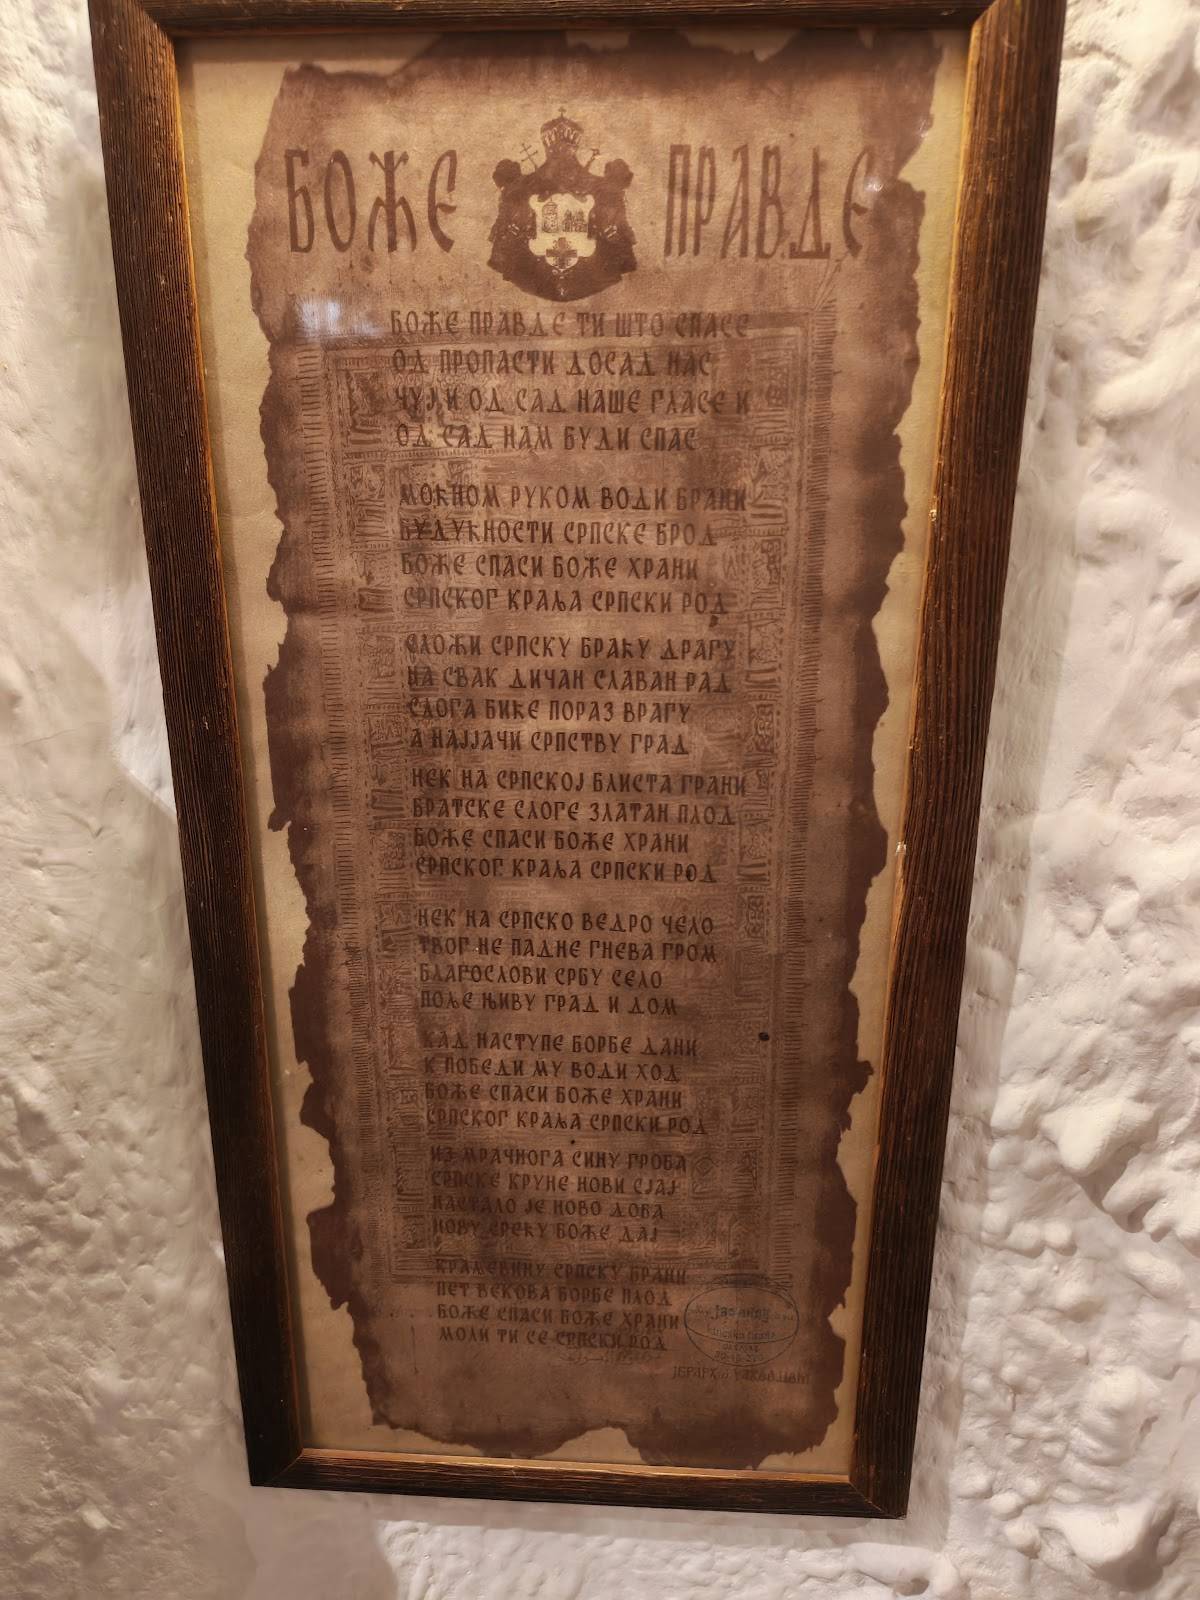 БОЖЕ ПРАВДЕ
БОЖЕ ПРАВДЕ ТИ ШТО СПАСЕ
ОД ПРОПАСТИ ДОСАД НАС
ЧУЈ И ОД САД НАШЕ ГЛАСЕ И
ОД САД НАМ БУДИ СПАС
МОЋНОМ РУКОМ ВОДИ БРАНИ
БУДУЋНОСТИ СРПСКЕ БРОД
БОЖЕ СПАСИ БОЖЕ ХРАНИ
СРПСКОГ КРАЉА СРПСКИ РОД
СЛОЖИ СРПСКУ БРАЋУ ДРАГУ
НА СВАК ДИЧАН СЛАВАН РАД
СЛОГА БИЋЕ ПОРАЗ ВРАГУ
А НАЈЈАЧИ СРПСТВУ ГРАД
НЕК НА СРПСКОЈ БЛИСТА ГРАНИ
БРАТСКЕ СЛОГЕ ЗЛАТАН ПЛОД
БОЖЕ СПАСИ БОЖЕ ХРАНИ
СРПСКОГ КРАЉА СРПСКИ РОД
НЕК НА СРПСКО ВЕДРО ЧЕЛО
ТВОГ НЕ ПАДНЕ ГНЕВА ГРОМ
БЛАГОСЛОВИ СРБУ СЕЛО
ПОЉЕ ЊИВУ ГРАД И ДОМ
КАД НАСТУПЕ БОРБЕ ДАНИ
К ПОБЕДИ МУ ВОДИ ХОД
БОЖЕ СПАСИ БОЖЕ ХРАНИ
СРПСКОГ КРАЉА СРПСКИ РОД
ИЗ МРАЧНОГА СИНУ ГРОБА
СРПСКЕ КРУНЕ НОВИ СЈАЈ
НАСТАЛО ЈЕ НОВО ДОБА
НОВУ СРЕЋУ БОЖЕ ДАЈ
КРАЉЕВИНУ СРПСКУ БРАНИ
ПЕТ ВЕКОВА БОРБЕ ПЛОД
БОЖЕ СПАСИ БОЖЕ ХРАНИ
МОЛИ ТИ СЕ СРПСКИ РОД